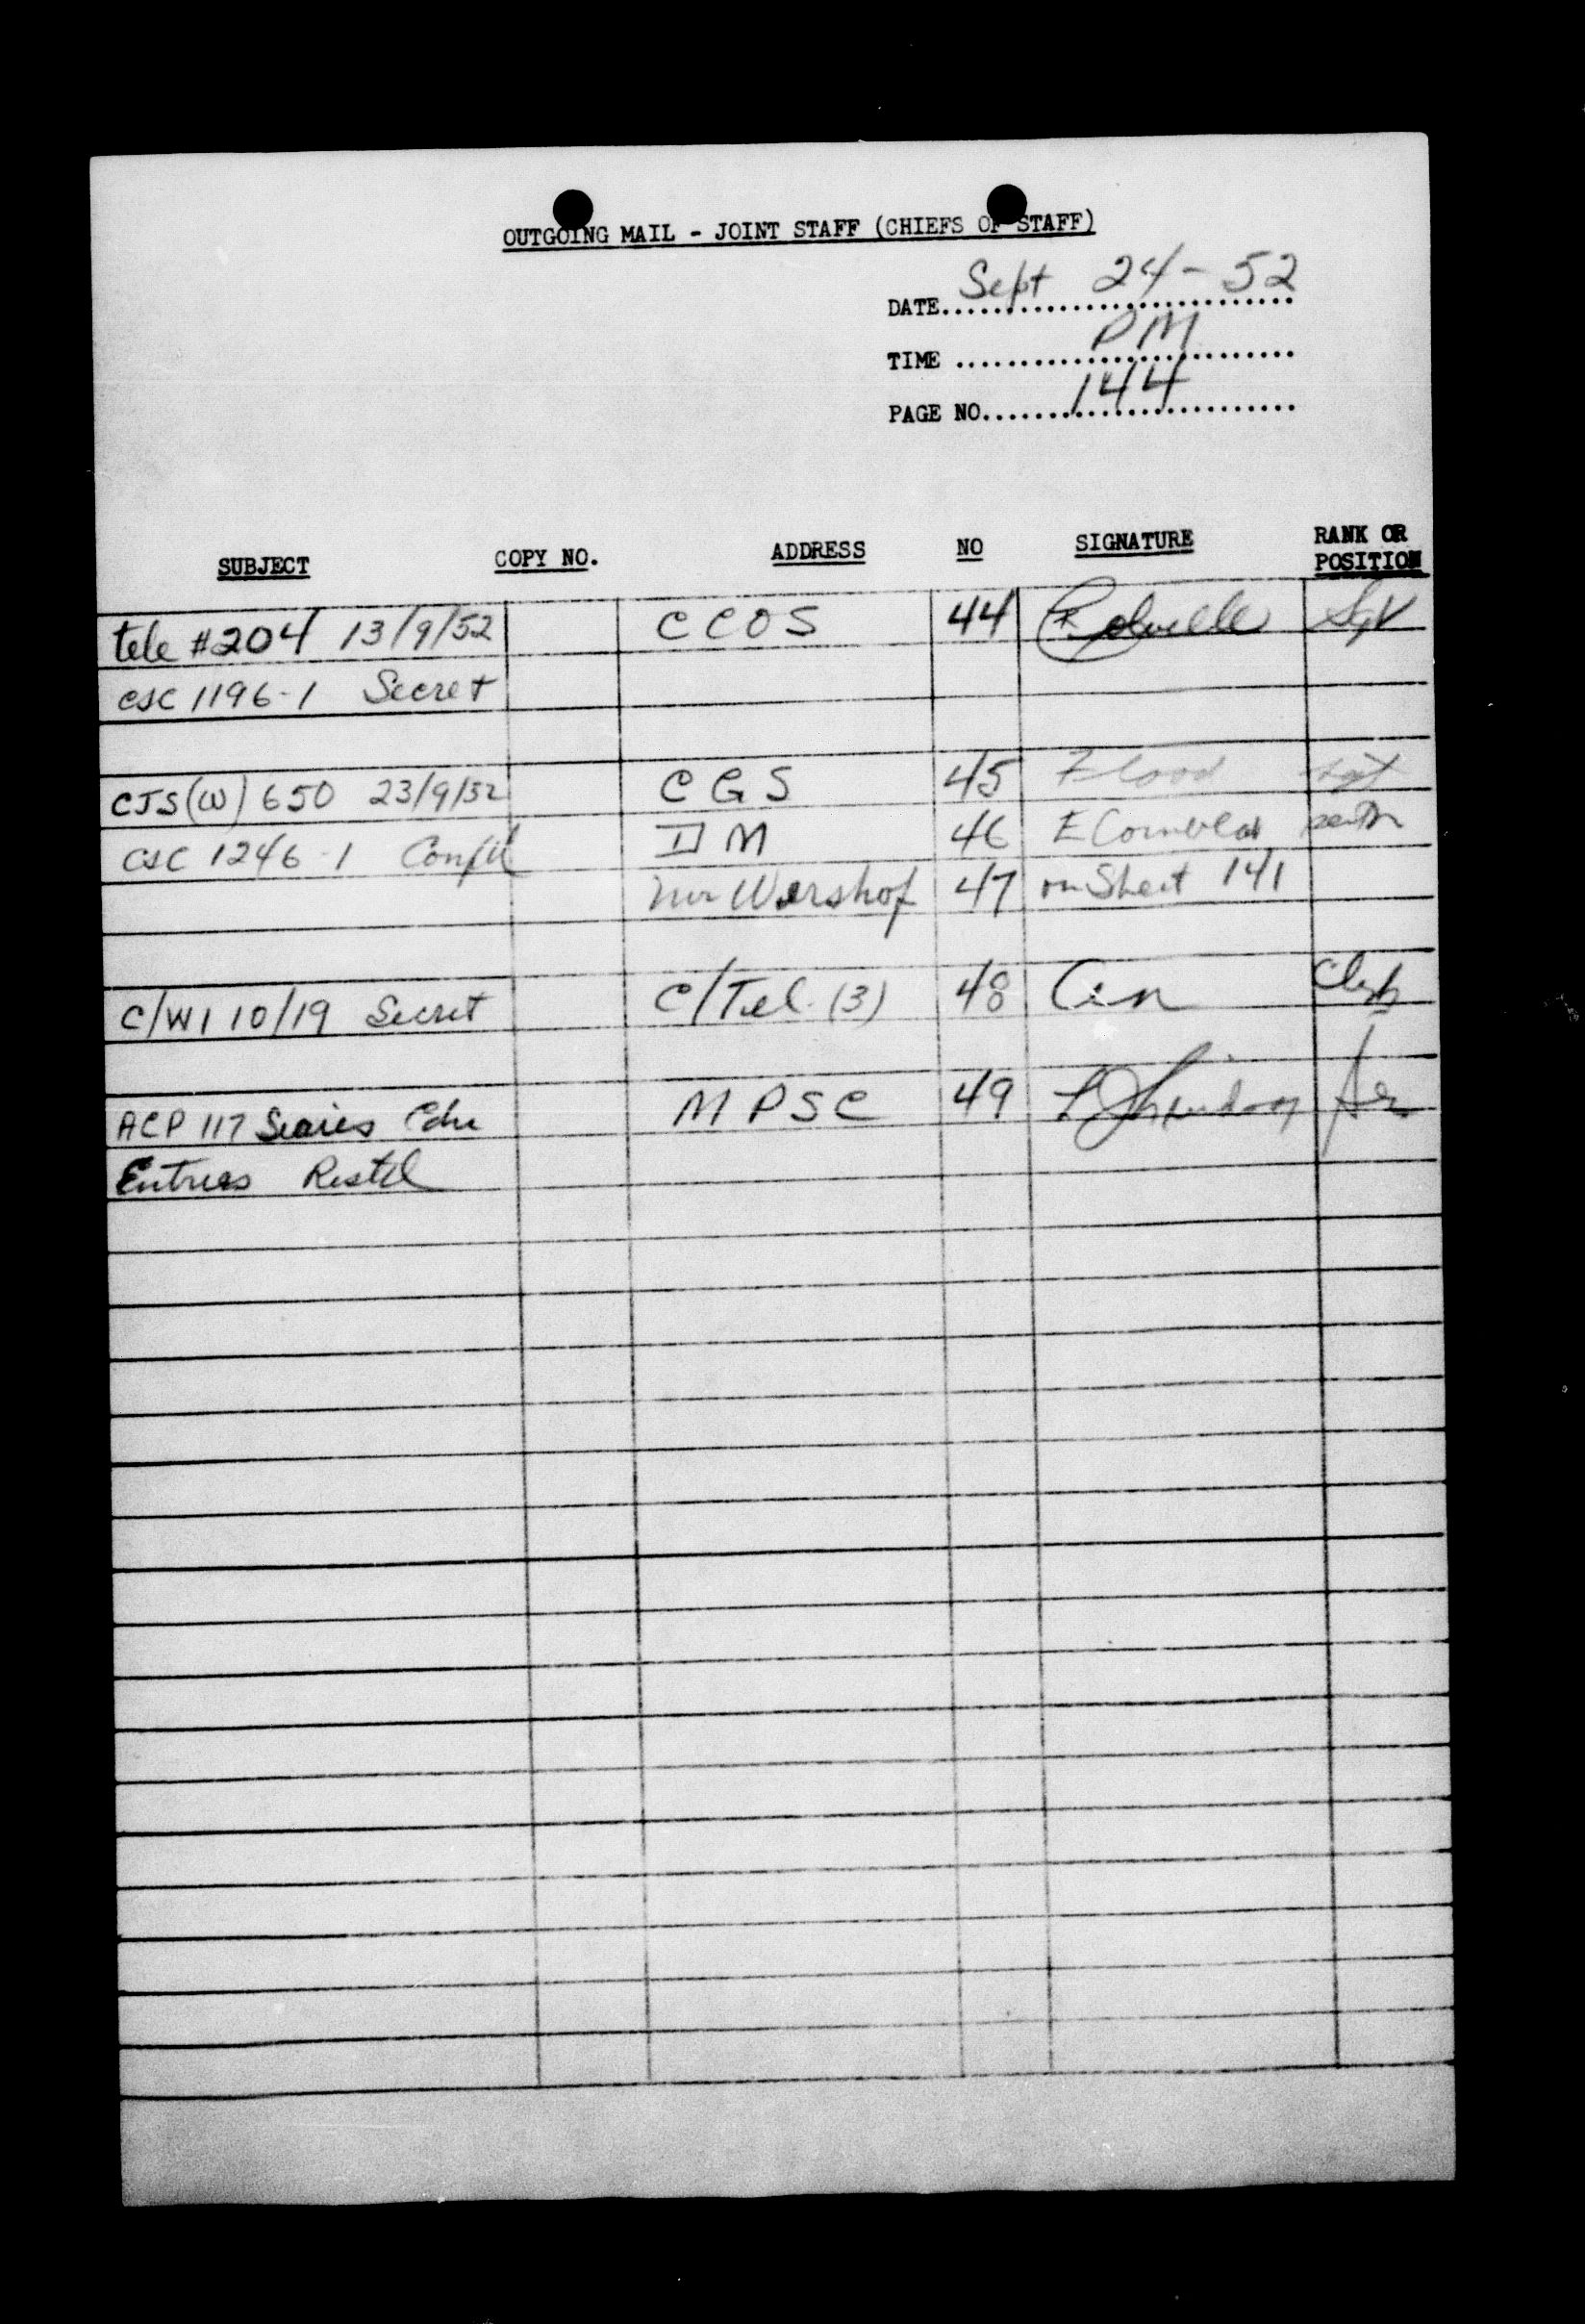 OUTGOING MAIL - JOINT STAFF (CHIEFS OF STAFF)
DATE Sept 24-52
TIME PM
PAGE NO. 144
SUBJECT COPY NO. ADDRESS NO SIGNATURE RANK OR POSITION
tele #204 13/9/52 CCOS 44 Sgt
CSC 1196-1 Secret
CJS(W) 650 23/9/52 CGS 45 Flood Sgt
CSC 1246-1 Confd DM 46
Mr Wershof 47 on Sheet 141
C/W1 10/19 Secret C/Tel. (3) 48 Clerk
ACP 117 Series Cdn MPSC 49
Entries Restd